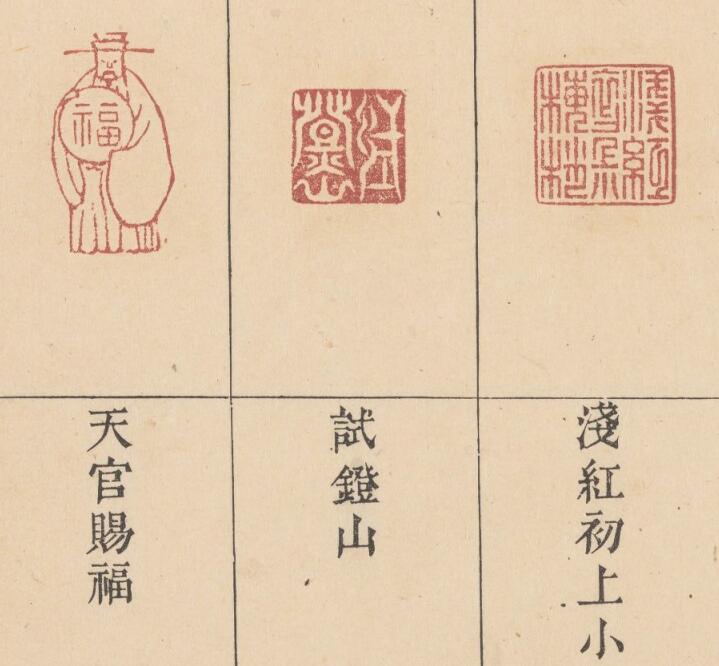 淺紅初上小
試鐙山
福
天官賜福